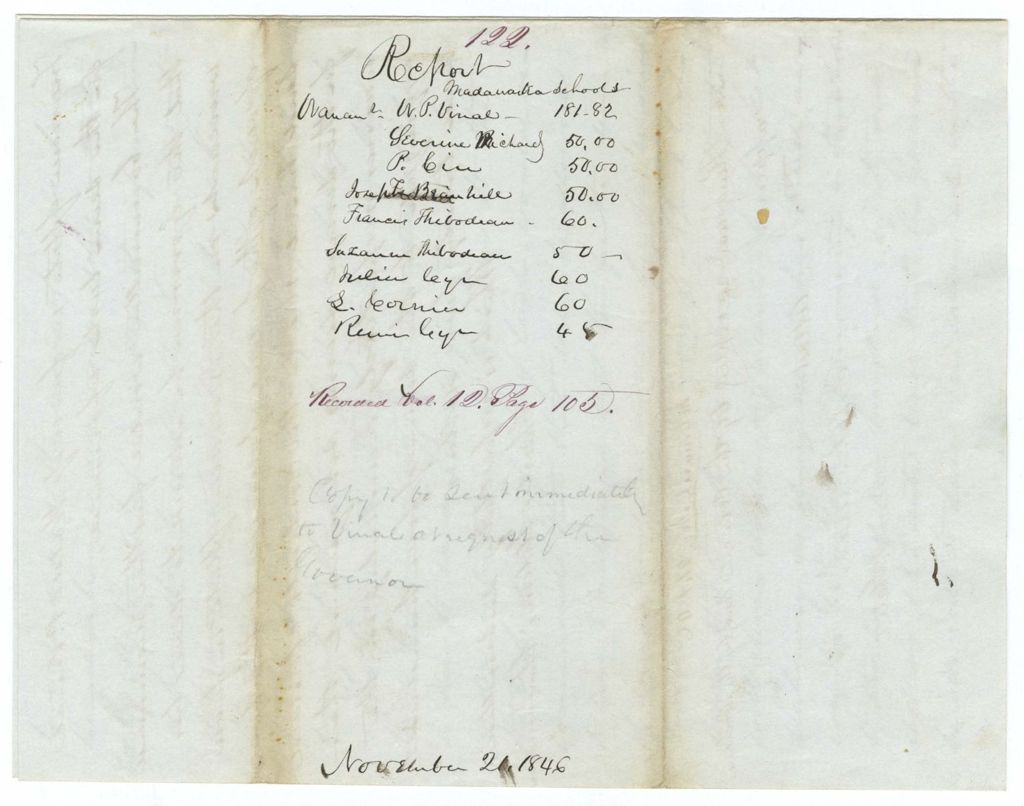 122.
Report
Madawaska Schools
Warrant W. P. Vinal - 181-82
Severine Richard 50.00
P. Cire 50.00
Joseph 50.00
Francis Thibodeau - 60.
Suzanne Thibodeau 50 -
Julien Cyr 60
L. Cormier 60
Remis Cyr 45
Recorded Vol. 12. Page 105.
Copy to be sent immediately
to Vinal at request of the
Governor
November 21, 1846